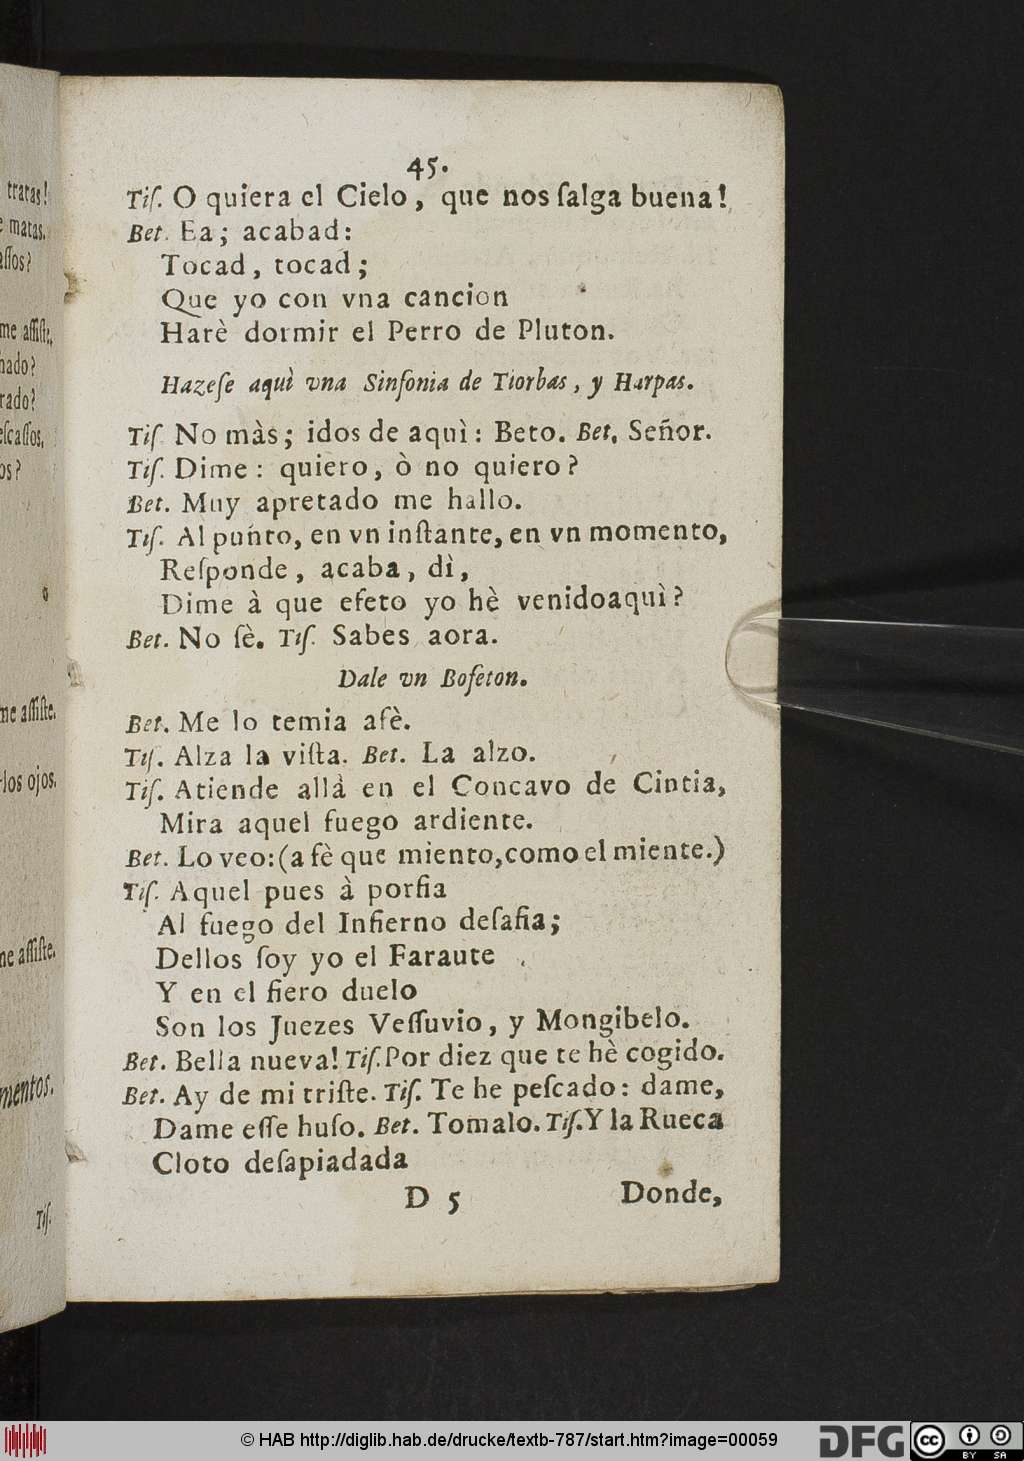 45.
Tiſ. O quiera el Cielo, que nos ſalga buena!
Bet. Ea; acabad:
Tocad, tocad;
Que yo con vna cancion
Harè dormir el Perro de Pluton.
Hazeſe aquì vna Sinfonia de Tiorbas, y Harpas.
Tiſ. No màs; idos de aquì: Beto. Bet. Señor.
Tiſ. Dime: quiero, ò no quiero?
Bet. Muy apretado me hallo.
Tiſ. Al punto, en vn inſtante, en vn momento,
Reſponde, acaba, dì,
Dime à que efeto yo hè venidoaquì?
Bet. No ſè. Tiſ. Sabes aora.
Dale vn Bofeton.
Bet. Me lo temia afè.
Tiſ. Alza la viſta. Bet. La alzo.
Tiſ. Atiende allà en el Concavo de Cintia,
Mira aquel fuego ardiente.
Bet. Lo veo: (a fè que miento, como el miente.)
Tiſ. Aquel pues à porfia
Al fuego del Infierno deſafia;
Dellos ſoy yo el Faraute
Y en el fiero duelo
Son los Juezes Veſſuvio, y Mongibelo.
Bet. Bella nueva! Tiſ. Por diez que te hè cogido.
Bet. Ay de mi triſte. Tiſ. Te he peſcado: dame,
Dame eſſe huſo. Bet. Tomalo. Tiſ. Y la Rueca
Cloto deſapiadada
D 5 Donde,
tratas!
matas.
me aſſiſte,
hado?
eſcaſſos,
me aſſiſte.
los ojos.
me aſſiſte.
mentos.
Tiſ.
© HAB http://diglib.hab.de/drucke/textb-787/start.htm?image=00059
DFG
cc
BY SA